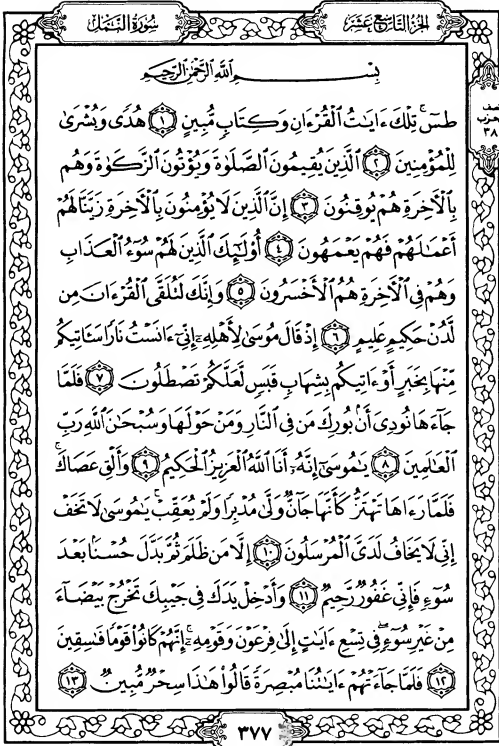 الجزء التاسع عشر
سورة النمل
بِسْمِ اللَّهِ الرَّحْمَٰنِ الرَّحِيمِ
طسٓ ۚ تِلْكَ ءَايَٰتُ الْقُرْءَانِ وَكِتَابٍ مُّبِينٍ ١ هُدًى وَبُشْرَىٰ
لِلْمُؤْمِنِينَ ٢ الَّذِينَ يُقِيمُونَ الصَّلَوٰةَ وَيُؤْتُونَ الزَّكَوٰةَ وَهُم
بِالْأَخِرَةِ هُمْ يُوقِنُونَ ٣ إِنَّ الَّذِينَ لَا يُؤْمِنُونَ بِالْأَخِرَةِ زَيَّنَّا لَهُمْ
أَعْمَٰلَهُمْ فَهُمْ يَعْمَهُونَ ٤ أُوْلَٰٓئِكَ الَّذِينَ لَهُمْ سُوٓءُ الْعَذَابِ
وَهُمْ فِي الْأَخِرَةِ هُمُ الْأَخْسَرُونَ ٥ وَإِنَّكَ لَتُلَقَّى الْقُرْءَانَ مِن
لَّدُنْ حَكِيمٍ عَلِيمٍ ٦ إِذْ قَالَ مُوسَىٰ لِأَهْلِهِۦٓ إِنِّيٓ ءَانَسْتُ نَارًا سَـَٔاتِيكُم
مِّنْهَا بِخَبَرٍ أَوْ ءَاتِيكُم بِشِهَابٍ قَبَسٍ لَّعَلَّكُمْ تَصْطَلُونَ ٧ فَلَمَّا
جَآءَهَا نُودِيَ أَنۢ بُورِكَ مَن فِي النَّارِ وَمَنْ حَوْلَهَا وَسُبْحَٰنَ اللَّهِ رَبِّ
الْعَٰلَمِينَ ٨ يَٰمُوسَىٰٓ إِنَّهُۥٓ أَنَا اللَّهُ الْعَزِيزُ الْحَكِيمُ ٩ وَأَلْقِ عَصَاكَ ۚ
فَلَمَّا رَءَاهَا تَهْتَزُّ كَأَنَّهَا جَآنٌّ وَلَّىٰ مُدْبِرًا وَلَمْ يُعَقِّبْ ۚ يَٰمُوسَىٰ لَا تَخَفْ
إِنِّي لَا يَخَافُ لَدَيَّ الْمُرْسَلُونَ ١٠ إِلَّا مَن ظَلَمَ ثُمَّ بَدَّلَ حُسْنًۢا بَعْدَ
سُوٓءٍ فَإِنِّي غَفُورٌ رَّحِيمٌ ١١ وَأَدْخِلْ يَدَكَ فِي جَيْبِكَ تَخْرُجْ بَيْضَآءَ
مِنْ غَيْرِ سُوٓءٍ ۖ فِي تِسْعِ ءَايَٰتٍ إِلَىٰ فِرْعَوْنَ وَقَوْمِهِۦٓ ۚ إِنَّهُمْ كَانُوا۟ قَوْمًا فَٰسِقِينَ
١٢ فَلَمَّا جَآءَتْهُمْ ءَايَٰتُنَا مُبْصِرَةً قَالُوا۟ هَٰذَا سِحْرٌ مُّبِينٌ ١٣
٣٧٧
٣٨